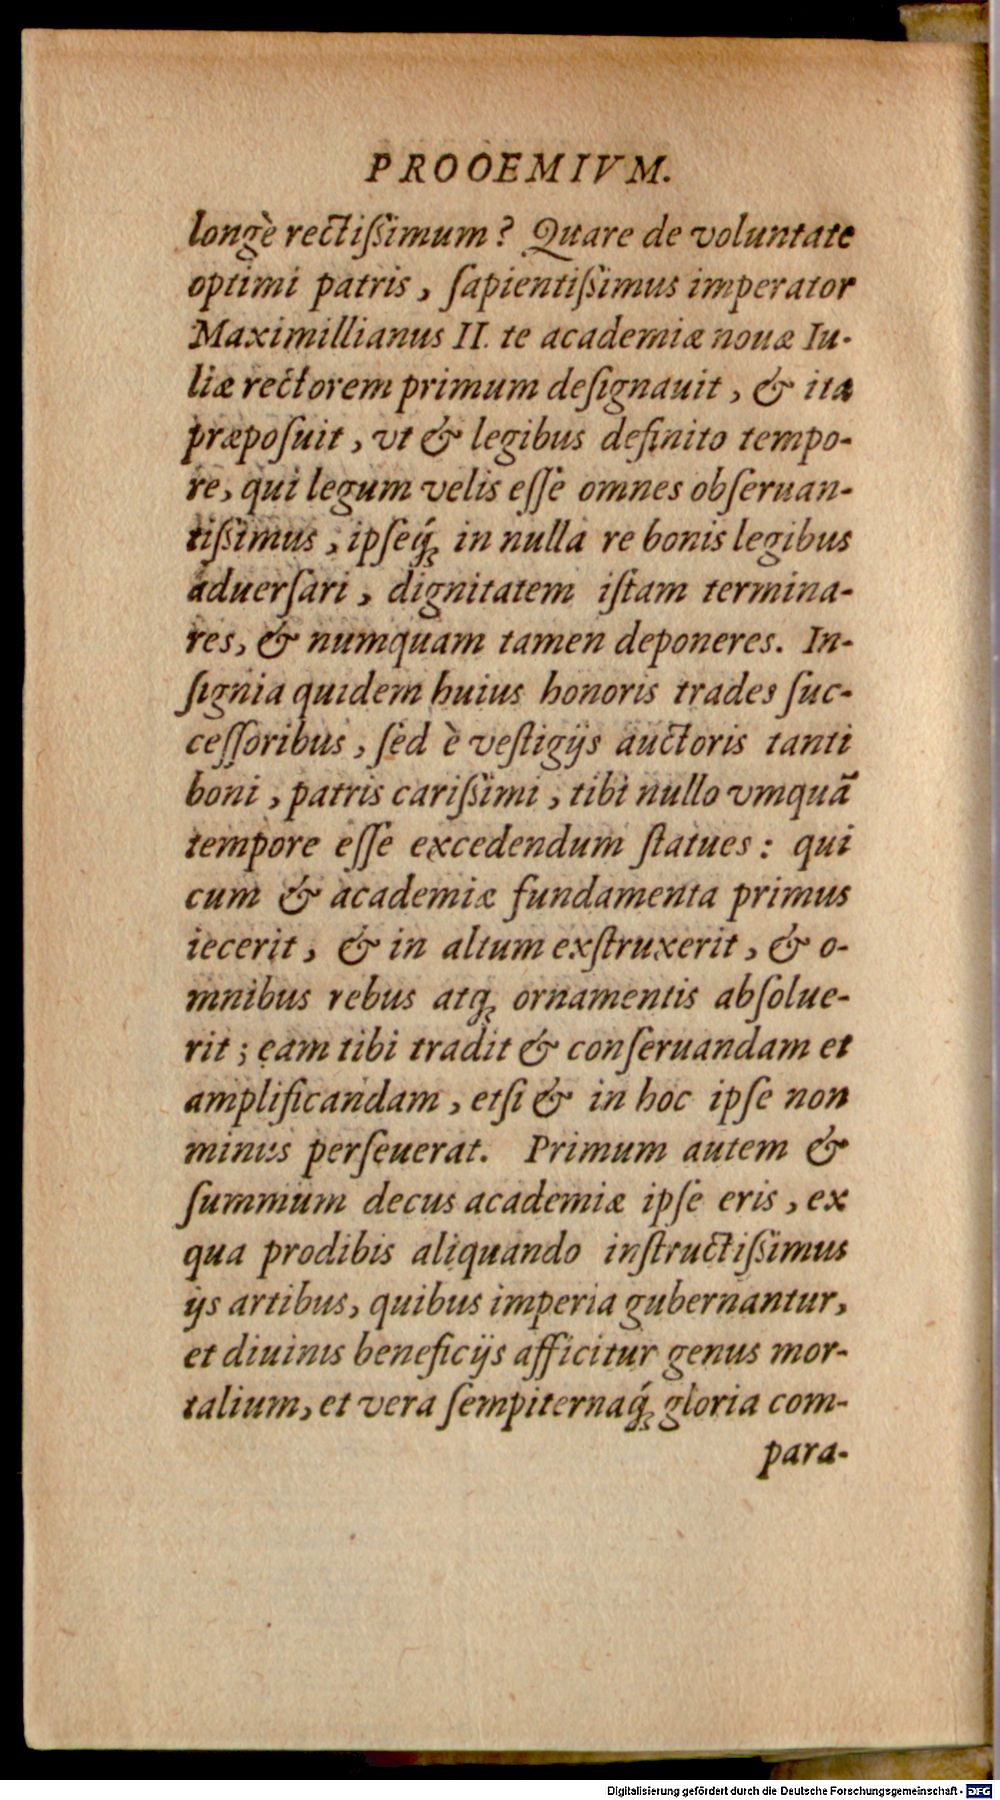 PROOEMIVM.
longè rectißimum? Quare de voluntate
optimi patris, ſapientißimus imperator
Maximillianus II. te academiæ nouæ Iu-
liæ rectorem primum deſignauit, & ita
præpoſuit, vt & legibus definito tempo-
re, qui legum velis eſſe omnes obſeruan-
tißimus, ipſeq́ꝫ in nulla re bonis legibus
aduerſari, dignitatem iſtam termina-
res, & numquam tamen deponeres. In-
ſignia quidem huius honoris trades ſuc-
ceſſoribus, ſed è veſtigijs auctoris tanti
boni, patris carißimi, tibi nullo vmquã
tempore eſſe excedendum ſtatues: qui
cum & academiæ fundamenta primus
iecerit, & in altum exſtruxerit, & o-
mnibus rebus atqꝫ ornamentis abſolue-
rit; eam tibi tradit & conſeruandam et
amplificandam, etſi & in hoc ipſe non
minus perſeuerat. Primum autem &
ſummum decus academiæ ipſe eris, ex
qua prodibis aliquando inſtructißimus
ijs artibus, quibus imperia gubernantur,
et diuinis beneficijs afficitur genus mor-
talium, et vera ſempiternaq́ꝫ gloria com-
para-
Digitalisierung gefördert durch die Deutsche Forschungsgemeinschaft - DFG